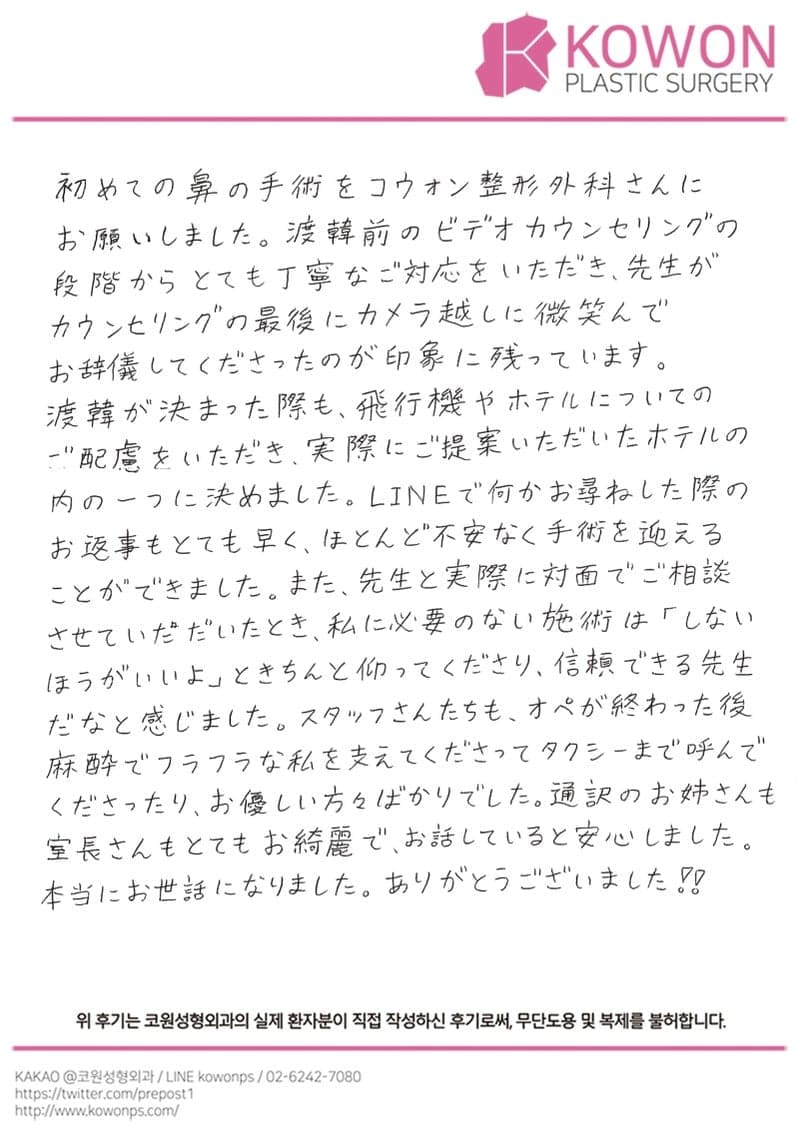 KOWON
PLASTIC SURGERY
初めての鼻の手術をコウォン整形外科さんに
お願いしました。渡韓前のビデオカウンセリングの
段階からとても丁寧なご対応をいただき、先生が
カウンセリングの最後にカメラ越しに微笑んで
お辞儀してくださったのが印象に残っています。
渡韓が決まった際も、飛行機やホテルについての
ご配慮をいただき、実際にご提案いただいたホテルの
内の一つに決めました。LINEで何かお尋ねした際の
お返事もとても早く、ほとんど不安なく手術を迎える
ことができました。また、先生と実際に対面でご相談
させていただいたとき、私に必要のない施術は「しない
ほうがいいよ」ときちんと仰ってくださり、信頼できる先生
だなと感じました。スタッフさんたちも、オペが終わった後
麻酔でフラフラな私を支えてくださってタクシーまで呼んで
くださったり、お優しい方々ばかりでした。通訳のお姉さんも
室長さんもとてもお綺麗で、お話していると安心しました。
本当にお世話になりました。ありがとうございました!!
위 후기는 코원성형외과의 실제 환자분이 직접 작성하신 후기로써, 무단도용 및 복제를 불허합니다.
KAKAO @코원성형외과 / LINE kowonps / 02-6242-7080
https://twitter.com/prepost1
http://www.kowonps.com/